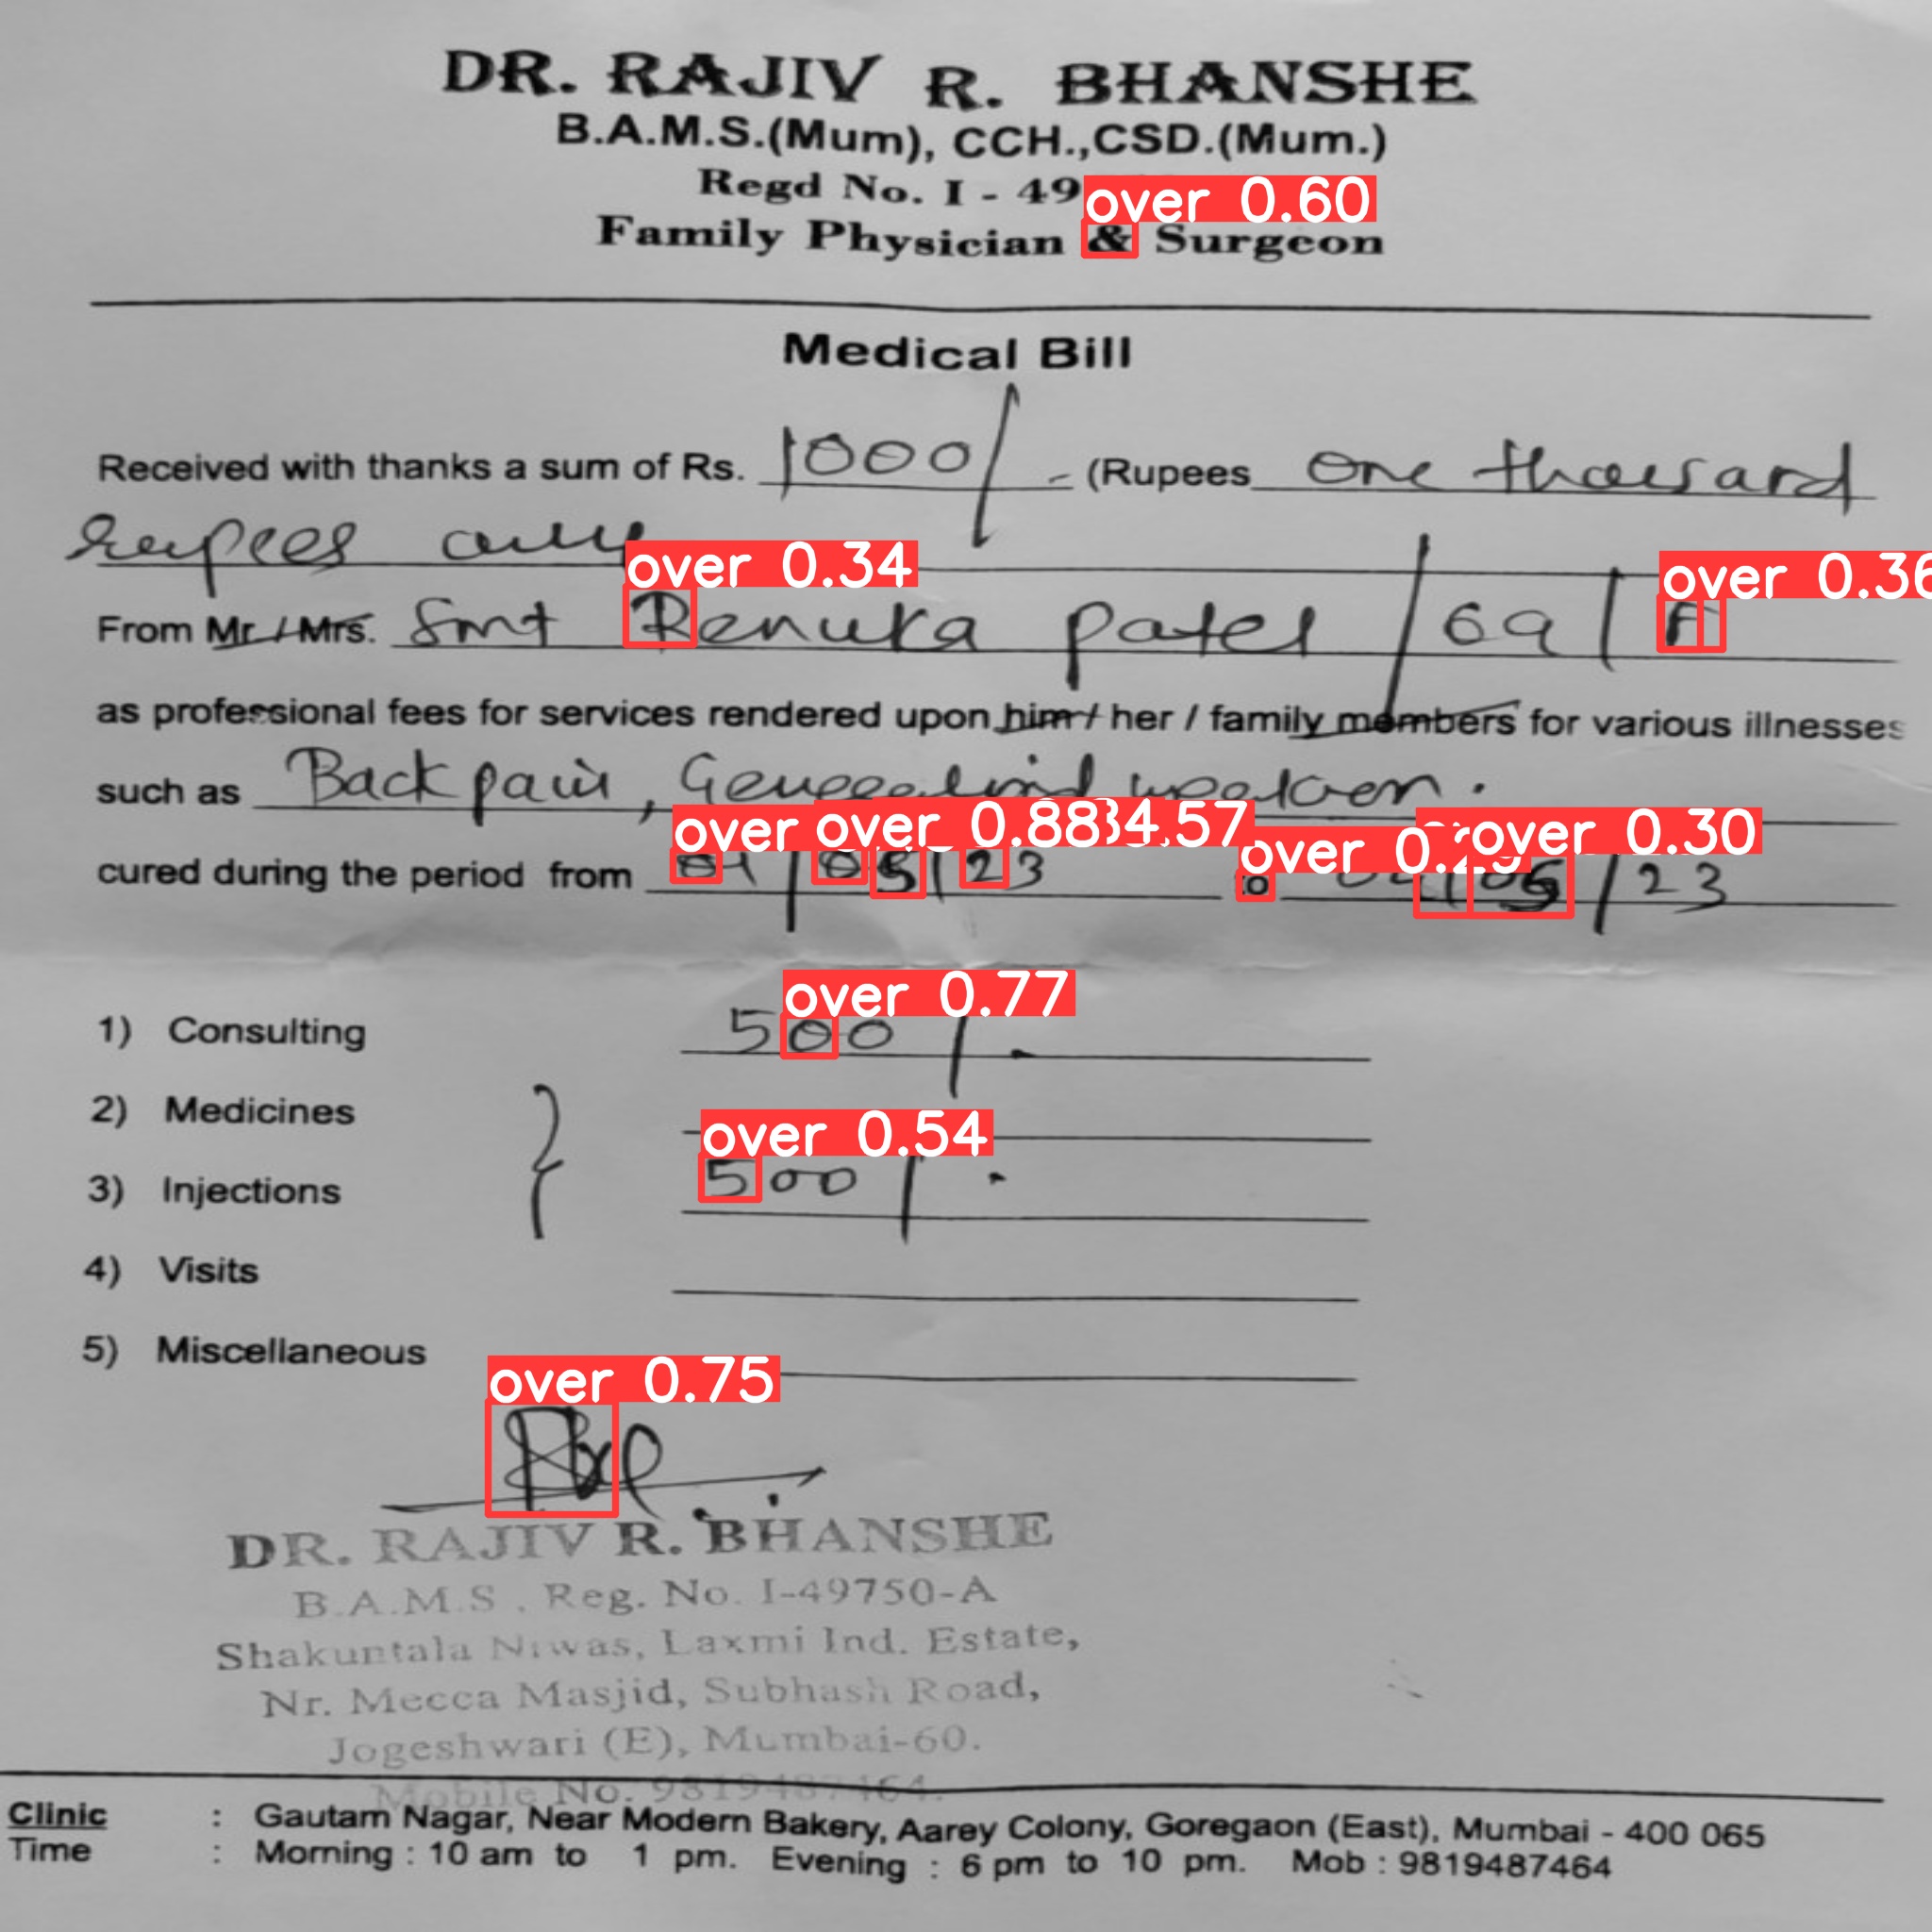 DR. RAJIV R. BHANSHE
B.A.M.S.(Mum), CCH.,CSD.(Mum.)
Regd No. I - 49
over 0.60
Family Physician & Surgeon
Medical Bill
Received with thanks a sum of Rs. 1000/- (Rupees one thousand
rupees only
over 0.34 over 0.36
From Mr. / Mrs. Smt Renuka patel / 69 / F
as professional fees for services rendered upon him / her / family members for various illnesses
such as Back pain,
over over 0.88 .57 over over 0.30
cured during the period from 01/05/23 to 05/23
over 0.77
1) Consulting 500/-
2) Medicines
over 0.54
3) Injections 500/-
4) Visits
5) Miscellaneous
over 0.75
DR. RAJIV R. BHANSHE
B.A.M.S. Reg. No. I-49750-A
Shakuntala Niwas, Laxmi Ind. Estate,
Nr. Mecca Masjid, Subhash Road,
Jogeshwari (E), Mumbai-60.
Mobile No. 9819487464.
Clinic : Gautam Nagar, Near Modern Bakery, Aarey Colony, Goregaon (East), Mumbai - 400 065
Time : Morning : 10 am to 1 pm. Evening : 6 pm to 10 pm. Mob : 9819487464